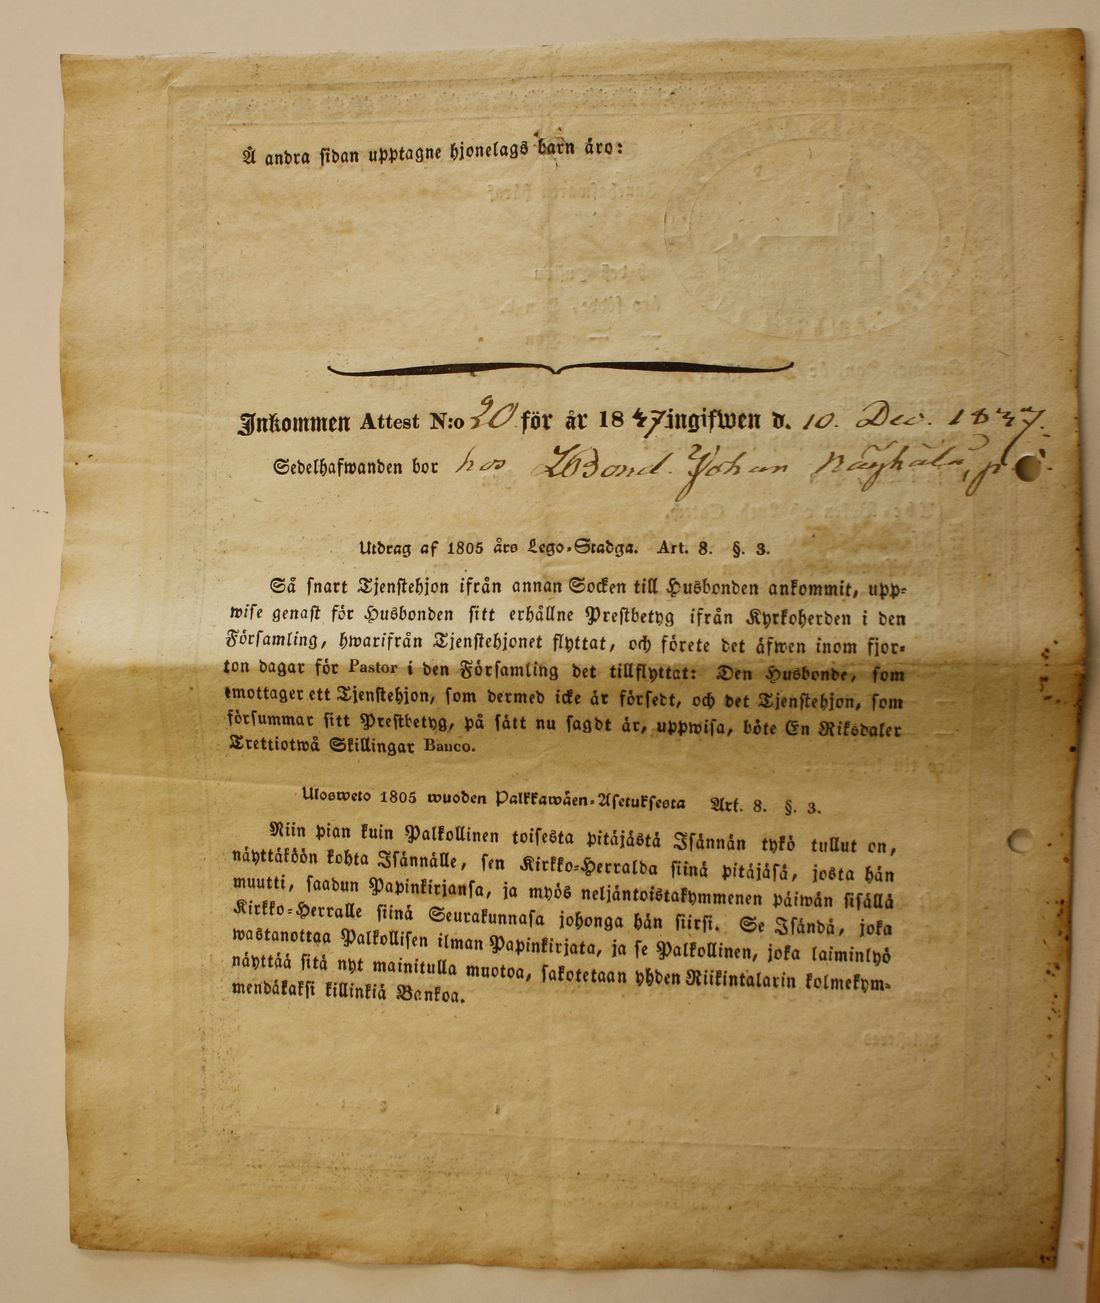 Å andra sidan upptagne hjonelags barn äro:
Inkommen Attest N:o 20 för år 1847 ingifwen d. 10. Dec. 1847.
Sedelhafwanden bor hos Bond. Johan
Utdrag af 1805 års Lego-Stadga. Art. 8. §. 3.
Så snart Tjenstehjon ifrån annan Socken till Husbonden ankommit, upp-
wise genast för Husbonden sitt erhållne Prestbetyg ifrån Kyrkoherden i den
Församling, hwarifrån Tjenstehjonet flyttat, och förete det äfwen inom fjor-
ton dagar för Pastor i den Församling det tillflyttat: Den Husbonde, som
emottager ett Tjenstehjon, som dermed icke är försedt, och det Tjenstehjon, som
försummar sitt Prestbetyg, på sätt nu sagdt är, uppwisa, böte En Riksdaler
Trettiotwå Skillingar Banco.
Ulosweto 1805 wuoden Palkkawäen-Asetuksesta Art. 8. §. 3.
Niin pian kuin Palkollinen toisesta pitäjästä Isännän tykö tullut on,
näyttäköön kohta Isännälle, sen Kirkko-Herralda siinä pitäjäsä, josta hän
muutti, saadun Papinkirjansa, ja myös neljäntoistakymmenen päiwän sisällä
Kirkko-Herralle siinä Seurakunnasa johonga hän siirsi. Se Isändä, joka
wastanottaa Palkollisen ilman Papinkirjata, ja se Palkollinen, joka laiminlyö
näyttää sitä nyt mainitulla muotoa, sakotetaan yhden Riikintalarin kolmekym-
mendäkaksi killinkiä Bankoa.